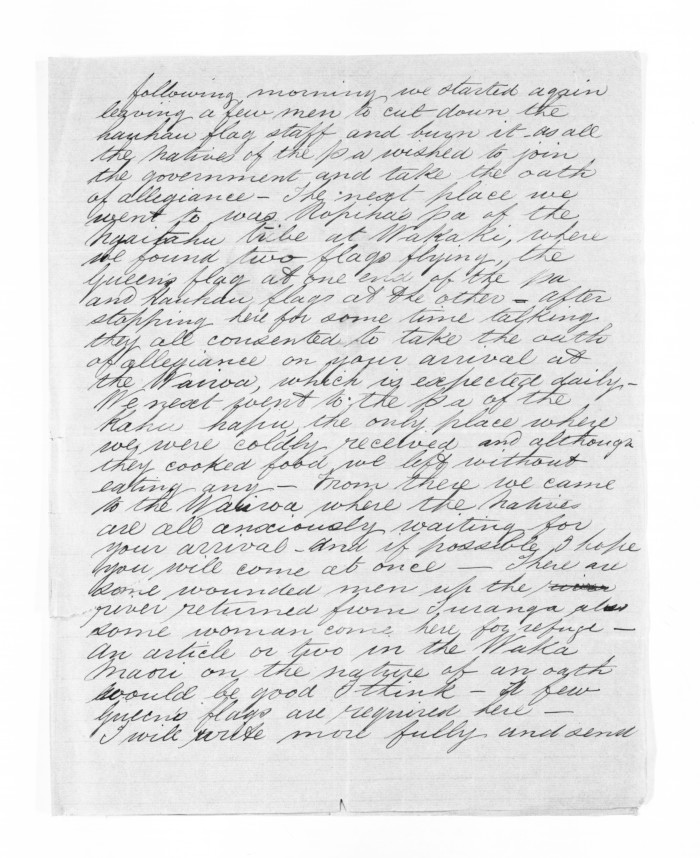 following morning we started again
leaving a few men to cut down the
hauhau flag staff and burn it - as all
the natives of the pa wished to join
the government and take the oath
of allegiance - The next place we
went to was Ropiha's pa of the
Ngaitahu tribe at Wakaki, where
we found two flags flying, the
Queen's flag at one end of the pa
and hauhau flags at the other - after
stopping here for some time talking
they all consented to take the oath
of allegiance on your arrival at
the Wairoa, which is expected daily -
We next went to the pa of the
Kahu hapu, the only place where
we were coldly received and although
they cooked food we left without
eating any - From there we came
to the Wairoa where the natives
are all anxiously waiting for
your arrival - and if possible I hope
you will come at once - There are
some wounded men up the river
river returned from Turanga also
some woman come here for refuge -
An article or two in the Waka
Maori on the nature of an oath
would be good I think - A few
Queen's flags are required here -
I will write more fully and send